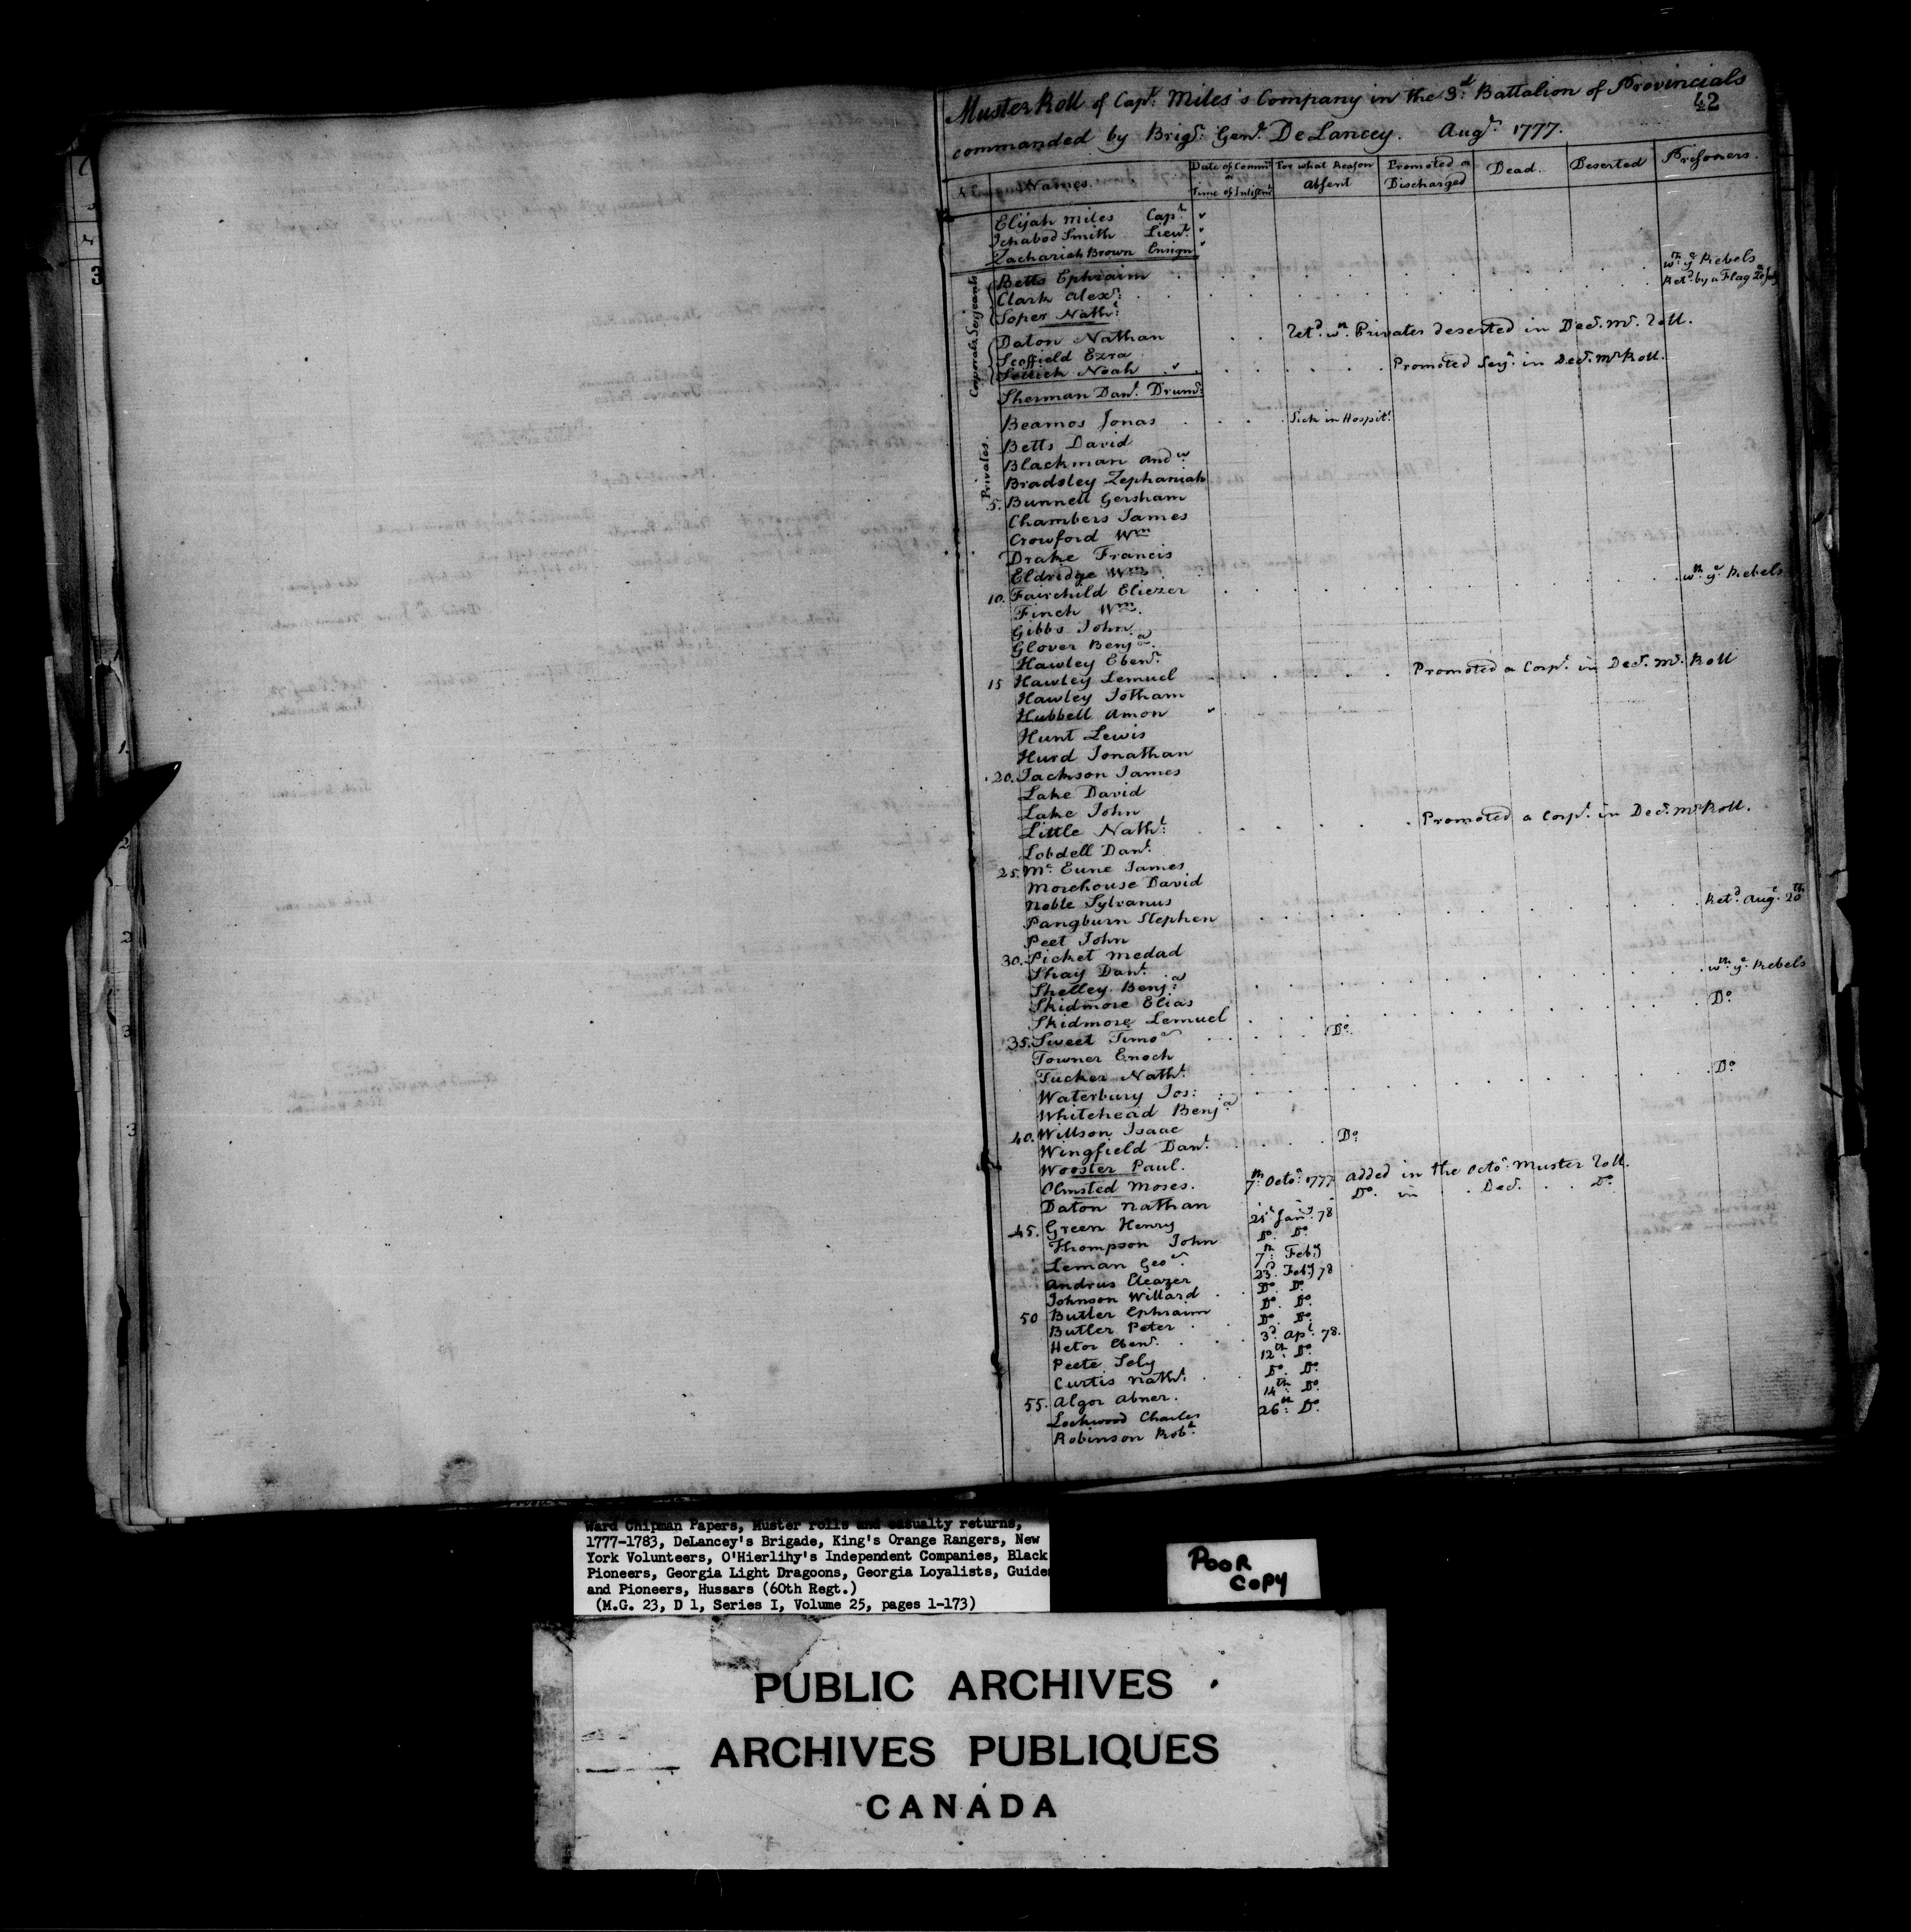 Muster Roll of Capt. Miles's Company in the 3d. Battalion of Provincials
42
commanded by Brigr. Genl. De Lancey. Augt. 1777.
No. Names. Date of Commn. or Time of Inlistmt. For what Reason Absent Promoted or Discharged Dead. Deserted Prisoners.
Elijah Miles Capt.
Ichabod Smith Lieut.
Zachariah Brown Ensign
Serjeants
Betts Ephraim wth. ye. Rebels
Clark Alexr. Retd. by a Flag
Soper Nathl.
Corporals
Daton Nathan Retd. wth. Privates deserted in Decr. Mr. Roll.
Scoffield Ezra
Sellick Noah Promoted Serjt. in Decr. Mr. Roll.
Sherman Danl. Drumr.
Privates.
Beamos Jonas Sick in Hospitl.
Betts David
Blackman Andw.
Bradsley Zephaniah
5. Bunnell Gersham
Chambers James
Crowford Wm
Drake Francis
Eldridge Wm.
10. Fairchild Eliezer wth. ye. Rebels
Finch Wm.
Gibbs John
Glover Benja.
Hawley Ebenr.
15 Hawley Lemuel Promoted a Corpl. in Decr. Mr. Roll
Hawley Jotham
Hubbell Amon
Hunt Lewis
Hurd Jonathan
20. Jackson James
Lake David
Lake John
Little Nathl. Promoted a Corpl. in Decr. Mr. Roll.
Lobdell Danl.
25. Mc. Eune James
Morehouse David
Noble Sylvanus
Pangburn Stephen Retd. Augt. 20th
Peet John
30. Picket Medad
Shay Danl.
Shelley Benja. wth. ye. Rebels
Skidmore Elias
Skidmore Lemuel Do.
35. Sweet Timo. Do.
Towner Enoch
Tucker Nathl.
Waterbury Jos: Do.
Whitehead Benja.
40. Willson Isaac
Wingfield Danl. Do.
Wooster Paul.
Olmsted Moses. 7th. Octor. 1777 Added in the Octor. Muster Roll.
Daton Nathan Do. in Decr. Do.
45. Green Henry 21st Jany. 78
Thompson John Do. Do.
Leman Geoe. 7th. Feby
Andrus Eleazer 23d. Feby 78
Johnson Willard Do. Do.
50 Butler Ephraim Do. Do.
Butler Peter Do. Do.
Hetor Ebenr. 3d. Apl. 78.
Peete Sely 12th. Do.
Curtis Nathl. Do. Do.
55. Algor Abner. 14th. Do.
Lockwood Charles 26th. Do.
Robinson Robt.
Ward Chipman Papers, Muster rolls and casualty returns,
1777-1783, DeLancey's Brigade, King's Orange Rangers, New
York Volunteers, O'Hierlihy's Independent Companies, Black
Pioneers, Georgia Light Dragoons, Georgia Loyalists, Guides
and Pioneers, Hussars (60th Regt.)
(M.G. 23, D 1, Series I, Volume 25, pages 1-173)
POOR
COPY
PUBLIC ARCHIVES
ARCHIVES PUBLIQUES
CANADA